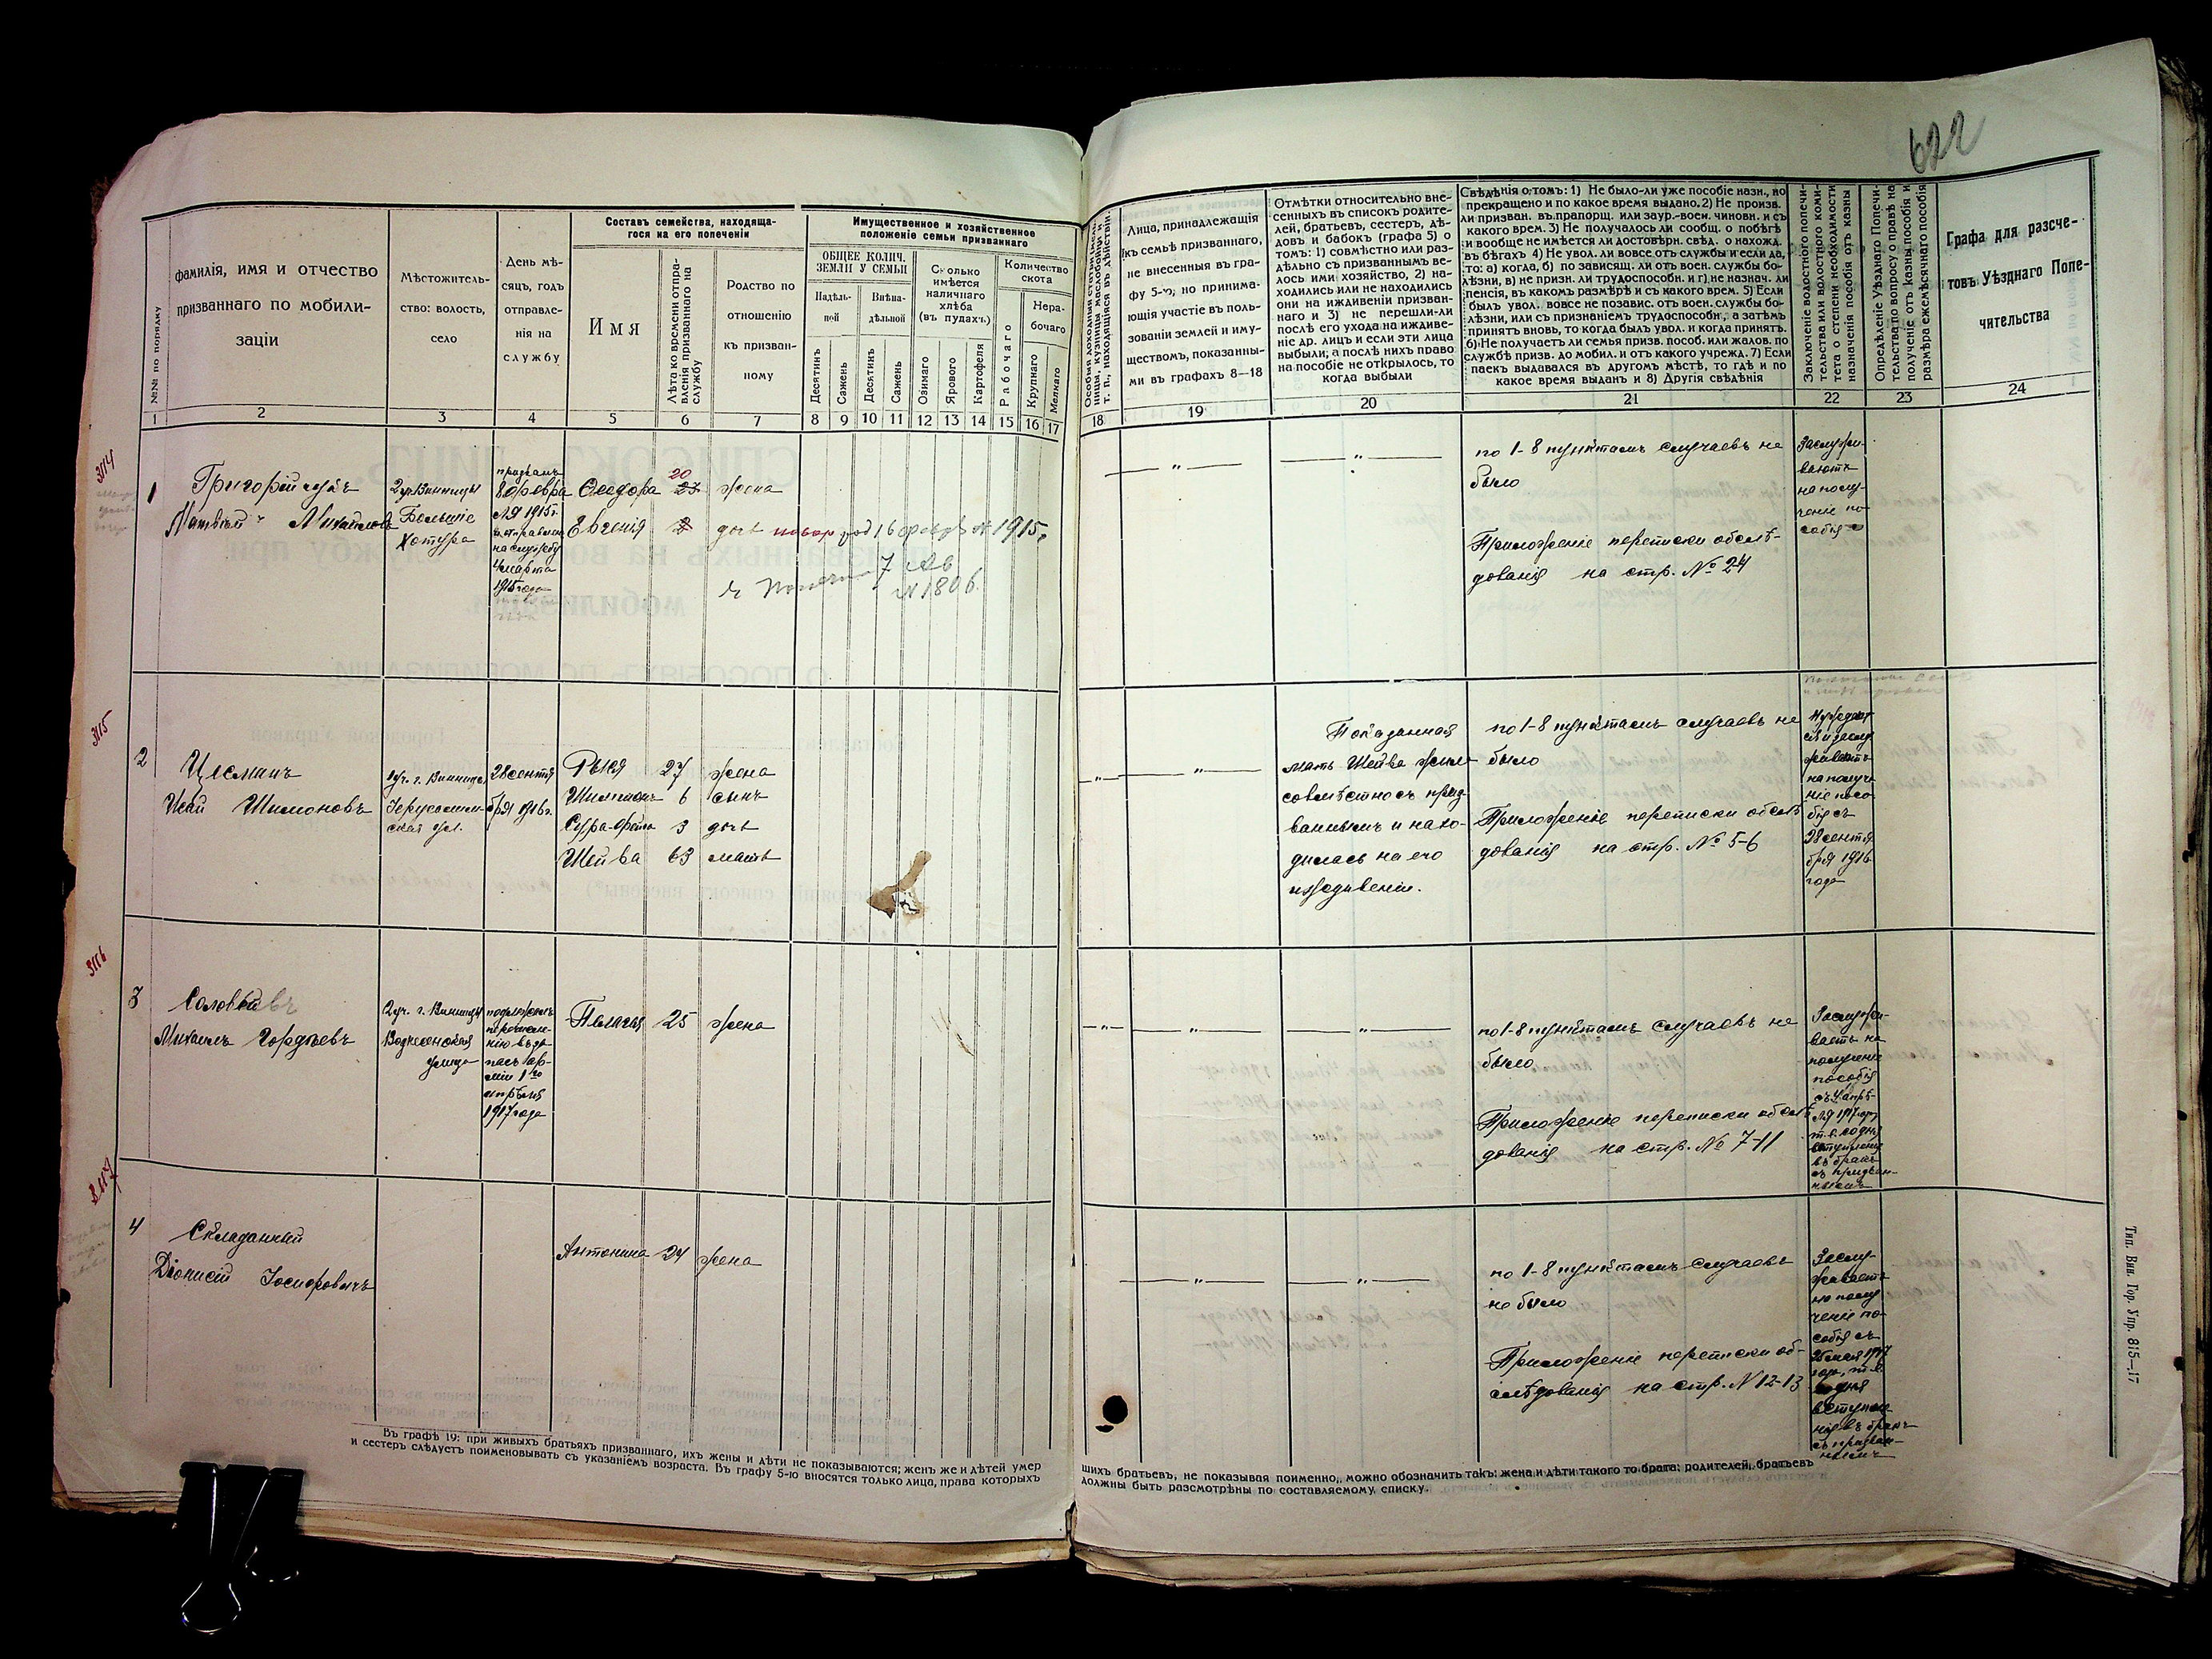 622
№№ по порядку
фамилія, имя и отчество
призваннаго по мобили-
заціи
Мѣстожитель-
ство: волость,
село
День мѣ-
сяцъ, годъ
отправле-
нія на
службу
Составъ семейства, находяща-
гося на его попеченіи
Имя
Лѣта ко времени отпра-
вленія призваннаго на
службу
Родство по
отношенію
къ призван-
ному
Имущественное и хозяйственное
положеніе семьи призваннаго
ОБЩЕЕ КОЛИЧ.
ЗЕМЛИ У СЕМЬИ
Надѣль-
ной
Внѣна-
дѣльной
Десятинъ
Сажень
Десятинъ
Сажень
Сколько
имѣется
наличнаго
хлѣба
(въ пудахъ.)
Озимаго
Ярового
Картофеля
Количество
скота
Рабочаго
Нера-
бочаго
Крупнаго
Мелкаго
1 2 3 4 5 6 7 8 9 10 11 12 13 14 15 16 17
Лица, принадлежащія
къ семьѣ призваннаго,
не внесенныя въ гра-
фу 5-ю; но принима-
ющія участіе въ поль-
зованіи землей и иму-
ществомъ, показанны-
ми въ графахъ 8—18
Отмѣтки относительно вне-
сенныхъ въ списокъ родите-
лей, братьевъ, сестеръ, дѣ-
довъ и бабокъ (графа 5) о
томъ: 1) совмѣстно или раз-
дѣльно съ призваннымъ ве-
лось ими хозяйство, 2) на-
ходились или не находились
они на иждивеніи призван-
наго и 3) не перешли-ли
послѣ его ухода на иждиве-
ніе др. лицъ и если эти лица
выбыли, а послѣ нихъ право
на пособіе не открылось, то
когда выбыли
Свѣдѣнія о томъ: 1) Не было-ли уже пособіе назн., но
прекращено и по какое время выдано. 2) Не произв.
ли призван. въ прапорщ. или заур.-воен. чиновн. и съ
какого врем. 3) Не получалось ли сообщ. о побѣгѣ
и вообще не имѣется ли достовѣрн. свѣд. о нахожд.
въ бѣгахъ 4) Не увол. ли вовсе отъ службы и если да,
то: а) когда, б) по зависящ. ли отъ воен. службы бо-
лѣзни, в) не призн. ли трудоспособн. и г) не назнач. ли
пенсія, въ какомъ размѣрѣ и съ какого врем. 5) Если
былъ увол. вовсе не позавис. отъ воен. службы бо-
лѣзни, или съ признаніемъ трудоспособн., а затѣмъ
принятъ вновь, то когда былъ увол. и когда принятъ.
6) Не получаетъ ли семья призв. пособ. или жалов. по
службѣ призв. до мобил. и отъ какого учрежд. 7) Если
паекъ выдавался въ другомъ мѣстѣ, то гдѣ и по
какое время выданъ и 8) Другія свѣдѣнія
Заключеніе волостного попечи-
тельства или волостного коми-
тета о степени необходимости
назначенія пособія отъ казны
Опредѣленіе Уѣзднаго Попечи-
тельства по вопросу о правѣ на
полученіе отъ казны пособія и
размѣра ежемѣсячнаго пособія
Графа для разсче-
товъ Уѣзднаго Попе-
чительства
18 19 20 21 22 23 24
3114
1
Григорійчукъ
Матвѣй Михайловъ
2 уч. Винницы
Большіе
Хотура
призванъ
8 февра
ля 1915 г.
отправленъ
на службу
4 марта
1915 года
Ѳеодора 20 23 жена
Евгенія 2 дочь
1915.
7
№ 1806.
— " —
— " —
по 1-8 пунктамъ случаевъ не
было
Приложеніе переписки обслѣ-
дованія на стр. № 24
Заслужи-
ваютъ
на полу-
ченіе по-
собія
3115
2
Цесманъ
Исай Шимоновъ
1 уч. г. Винницы
Іерусалим-
ская ул.
28 сентя
бря 1916 г.
Рыся 27 жена
Шимшонъ 6 сынъ
Сура-Фейга 3 дочь
Шейва 63 мать
— " —
— " —
Показанная
мать Шейва жила
совмѣстно съ приз-
ваннымъ и нахо-
дилась на его
иждивеніи.
по 1-8 пунктамъ случаевъ не
было
Приложеніе переписки обслѣ
дованія на стр. № 5-6
Нуждает
ся и заслу
живаетъ
на получе
ніе посо-
бія съ
28 сентя
бря 1916
года
3116
3
Соловьевъ
Михаилъ Гордѣевъ
2 уч. г. Винницы
Вознесенская
улица
подлежалъ
перечисле-
нію въ за-
пасъ ар-
міи 1го
апрѣля
1917 года
Пелагія 25 жена
— " —
— " —
— " —
по 1-8 пунктамъ случаевъ не
было
Приложеніе переписки обслѣ
дованія на стр. № 7-11
Заслужи-
ваетъ на
полученіе
пособія
съ 4 апрѣ-
ля 1917 году
т. е. со дня
вступленія
въ бракъ
съ призван-
нымъ
3117
4
Складанный
Діонисій Іосифовичъ
Антонина 24 жена
— " —
— " —
по 1-8 пунктамъ случаевъ
не было
Приложеніе переписки об-
слѣдованія на стр. № 12-13
Заслу-
живаетъ
на полу
ченіе по-
собія съ
25 мая 1917
году, т. е.
со дня
вступле
нія въ бракъ
съ призван-
нымъ
Въ графѣ 19: при живыхъ братьяхъ призваннаго, ихъ жены и дѣти не показываются; женъ же и дѣтей умер
и сестеръ слѣдуетъ поименовывать съ указаніемъ возраста. Въ графу 5-ю вносятся только лица, права которыхъ
шихъ братьевъ, не показывая поименно, можно обозначить такъ: жена и дѣти такого то брата; родителей, братьевъ
должны быть разсмотрѣны по составляемому списку.
Тип. Вин. Гор. Упр. 815—17